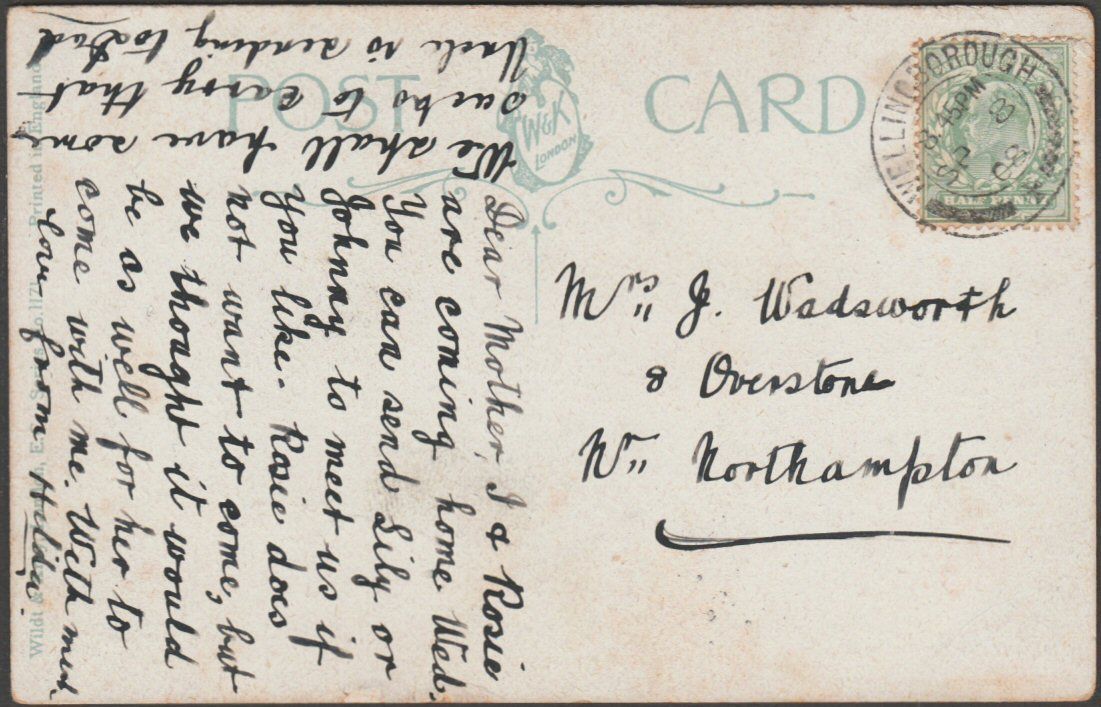 POST CARD
W&K
LONDON
WELLINGBOROUGH
8.45PM
HALF PENNY
Mrs J. Wadsworth
8 Overstone
Nr Northampton
Dear Mother, I & Rosie
are coming home Wed.
You can send Lily or
Johnny to meet us if
You like. Rosie does
not want to come, but
we thought it would
be as well for her to
come with me. With much
love from Hilda.
We shall have some
sacks to carry that
Uncle is sending to Dad
Wildt &
Printed in England